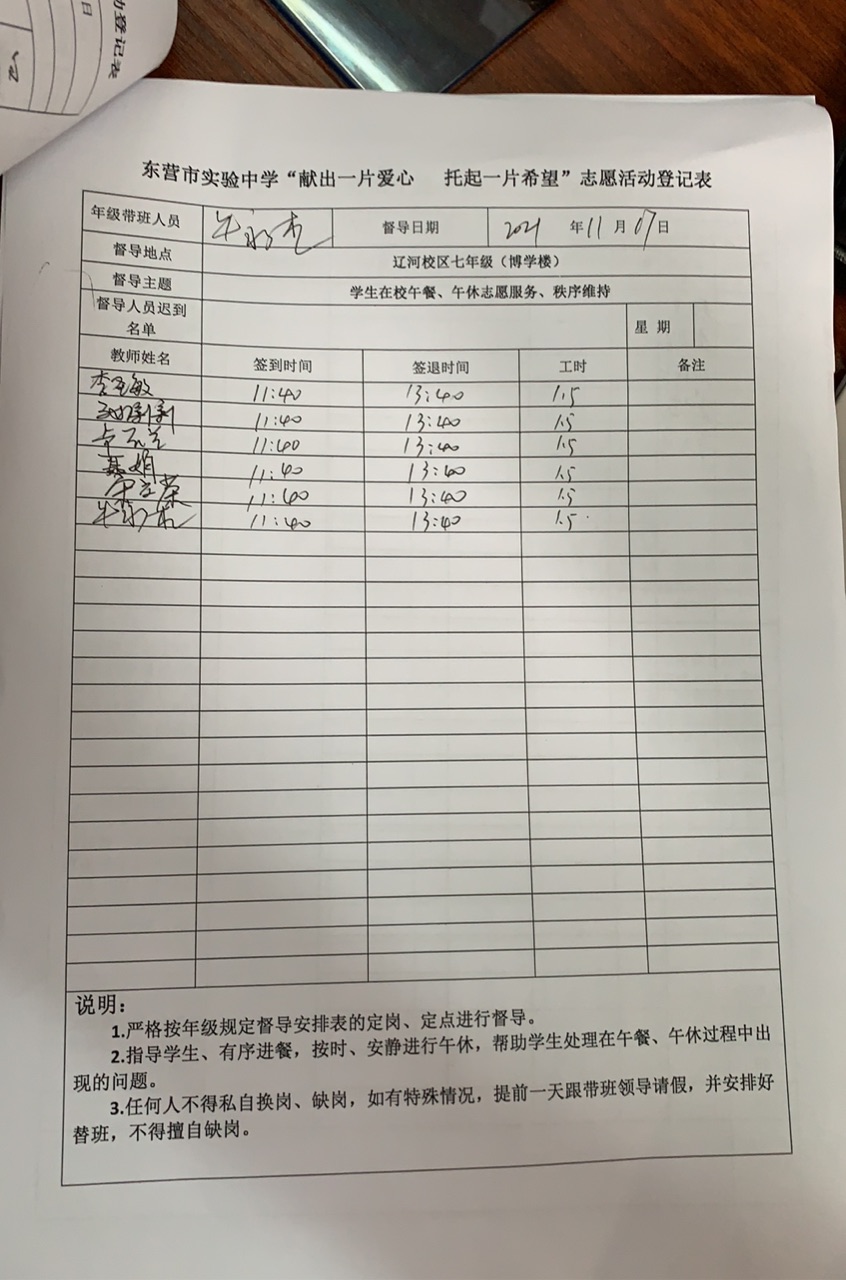 动登记表
日
东营市实验中学“献出一片爱心 托起一片希望”志愿活动登记表
年级带班人员 督导日期 2021 年 11 月 07 日
督导地点 辽河校区七年级（博学楼）
督导主题 学生在校午餐、午休志愿服务、秩序维持
督导人员迟到名单 星 期
教师姓名 签到时间 签退时间 工时 备注
11:40 13:40 1.5
11:40 13:40 1.5
11:40 13:40 1.5
娟 11:40 13:40 1.5
宋立荣 11:40 13:40 1.5
11:40 13:40 1.5
说明：
1.严格按年级规定督导安排表的定岗、定点进行督导。
2.指导学生、有序进餐，按时、安静进行午休，帮助学生处理在午餐、午休过程中出
现的问题。
3.任何人不得私自换岗、缺岗，如有特殊情况，提前一天跟带班领导请假，并安排好
替班，不得擅自缺岗。